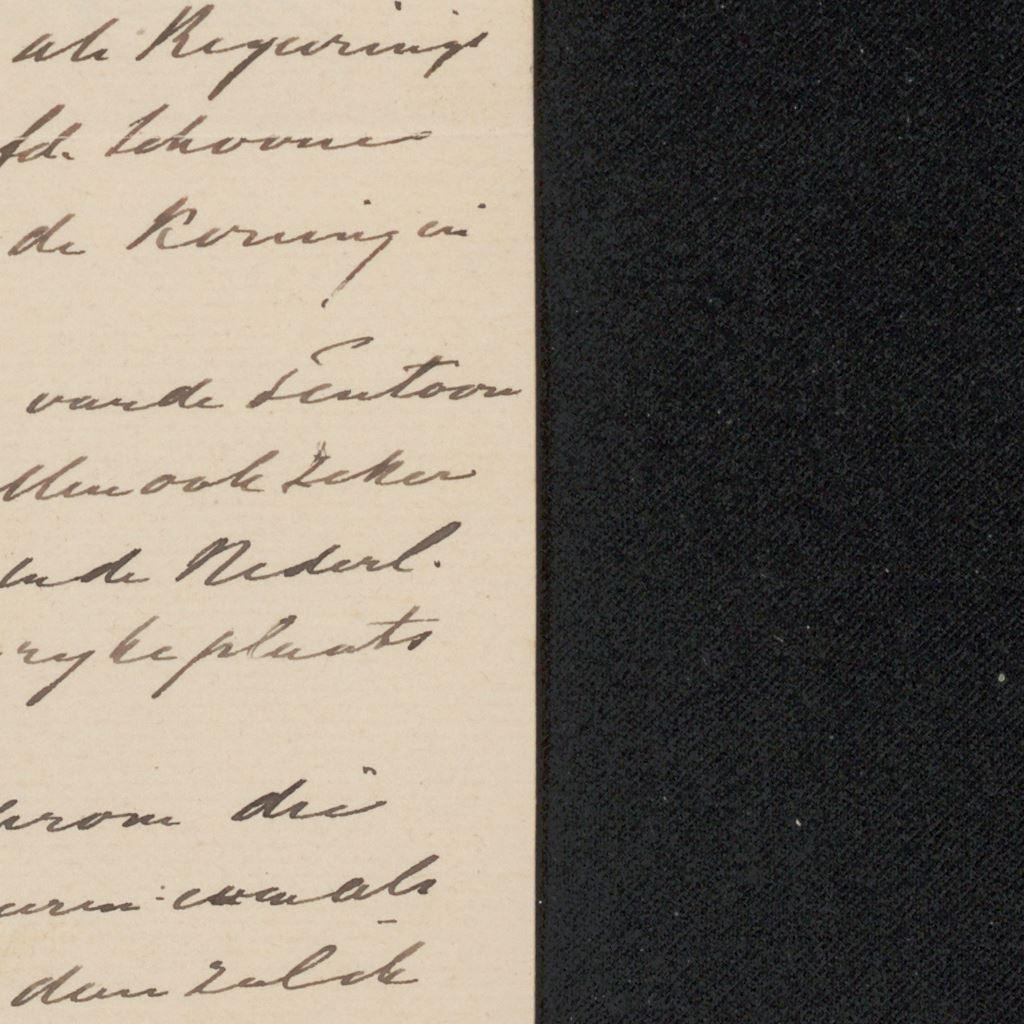 als Regeerings
fd. Schoone
de Koningin
van de Tentoon
llen ook zeker
en de Nederl.
ryke plaats
arom die
even als
dan zal ik